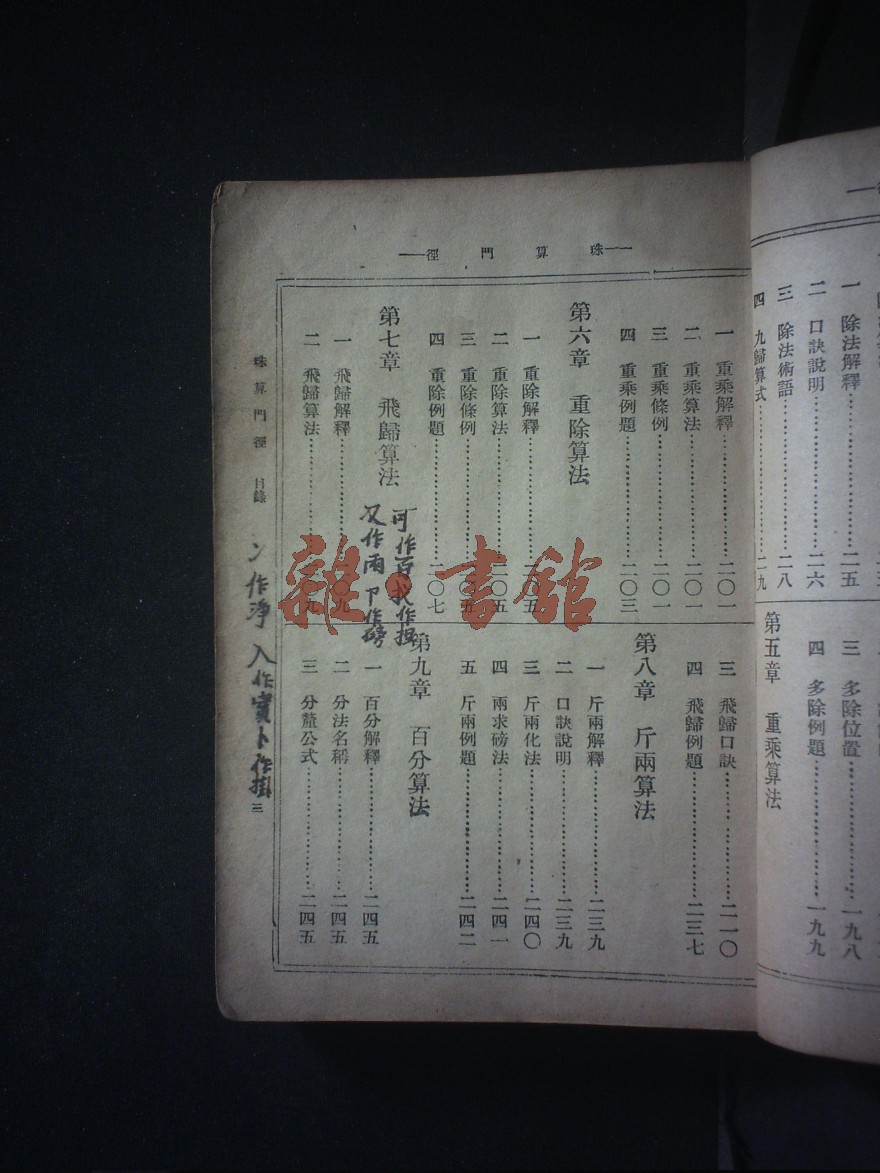 一珠算門徑一
一 重乘解釋……二〇一
二 重乘算法……二〇一
三 重乘條例……二〇一
四 重乘例題……二〇三
第六章 重除算法
一 重除解釋……二〇五
二 重除算法……二〇五
三 重除條例……二〇五
四 重除例題……二〇七
第七章 飛歸算法
一 飛歸解釋……二〇九
二 飛歸算法……二〇九
三 飛歸口訣……二一〇
四 飛歸例題……二三七
第八章 斤兩算法
一 斤兩解釋……二三九
二 口訣說明……二三九
三 斤兩化法……二四〇
四 兩求磅法……二四一
五 斤兩例題……二四二
第九章 百分算法
一 百分解釋……二四五
二 分法名稱……二四五
三 分釐公式……二四五
珠算門徑 目錄
三
作淨 入作實 卜作掛
可作百
又作兩 卩作磅
雜書館
一 除法解釋……二五
二 口訣說明……二六
三 除法術語……二八
四 九歸算式……二九
三 多除位置……一九八
四 多除例題……一九九
第五章 重乘算法